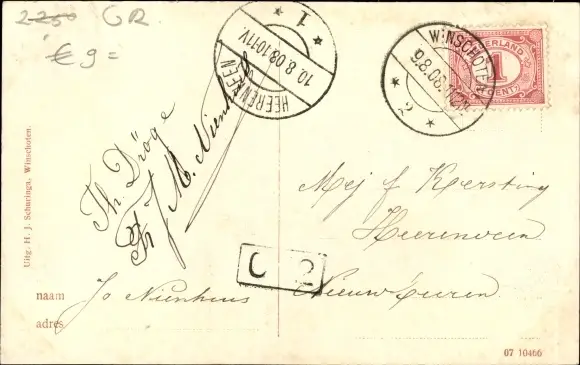 2250 GR.
€ 9=
HEERENVEEN
10.8.08.10-11V.
1
WINSCHOTEN
9.8.08.
2
NEDERLAND
1
CENT
Th Dröge
J M. Nienhuis
Mej J Kersting
Heerenveen
Nieuwburen
C 2
naam Jo Nienhuis
adres
Uitg. H. J. Schuringa, Winschoten.
07 10466